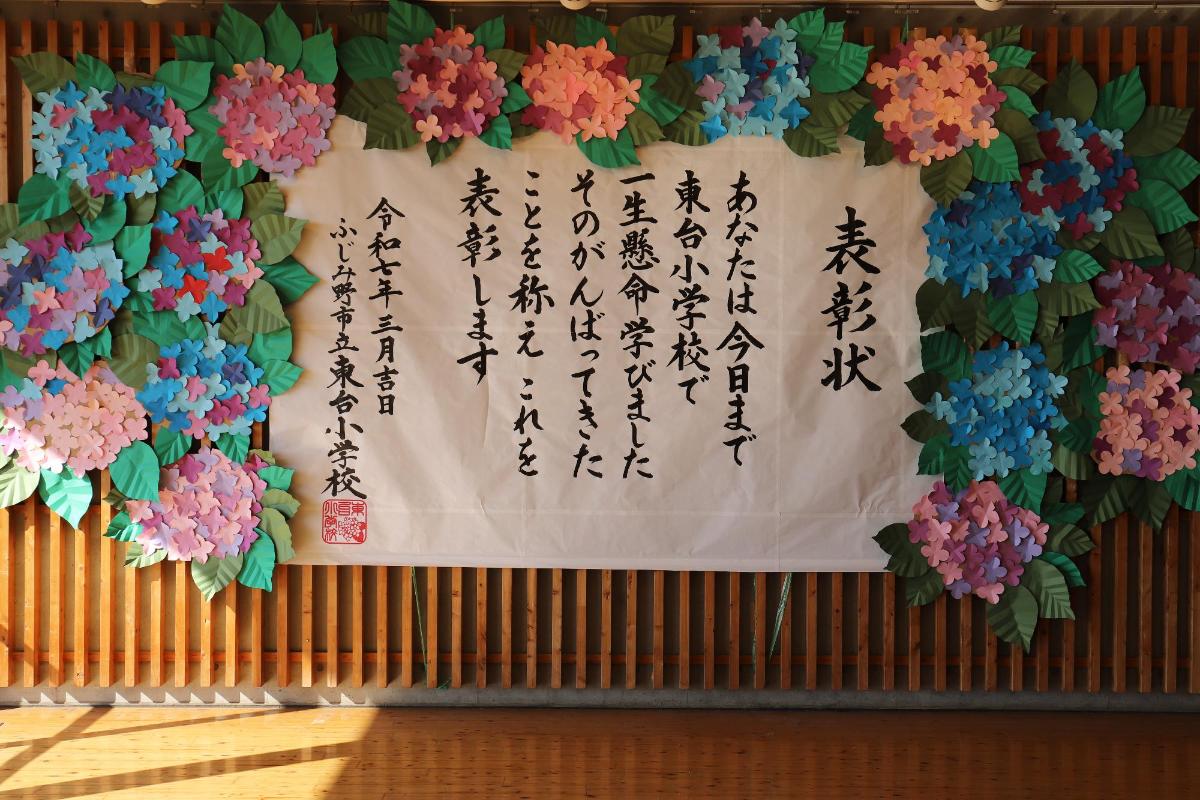 表彰状
あなたは今日まで
東台小学校で
一生懸命学びました
そのがんばってきた
ことを称え これを
表彰します
令和七年 三月吉日
ふじみ野市立東台小学校